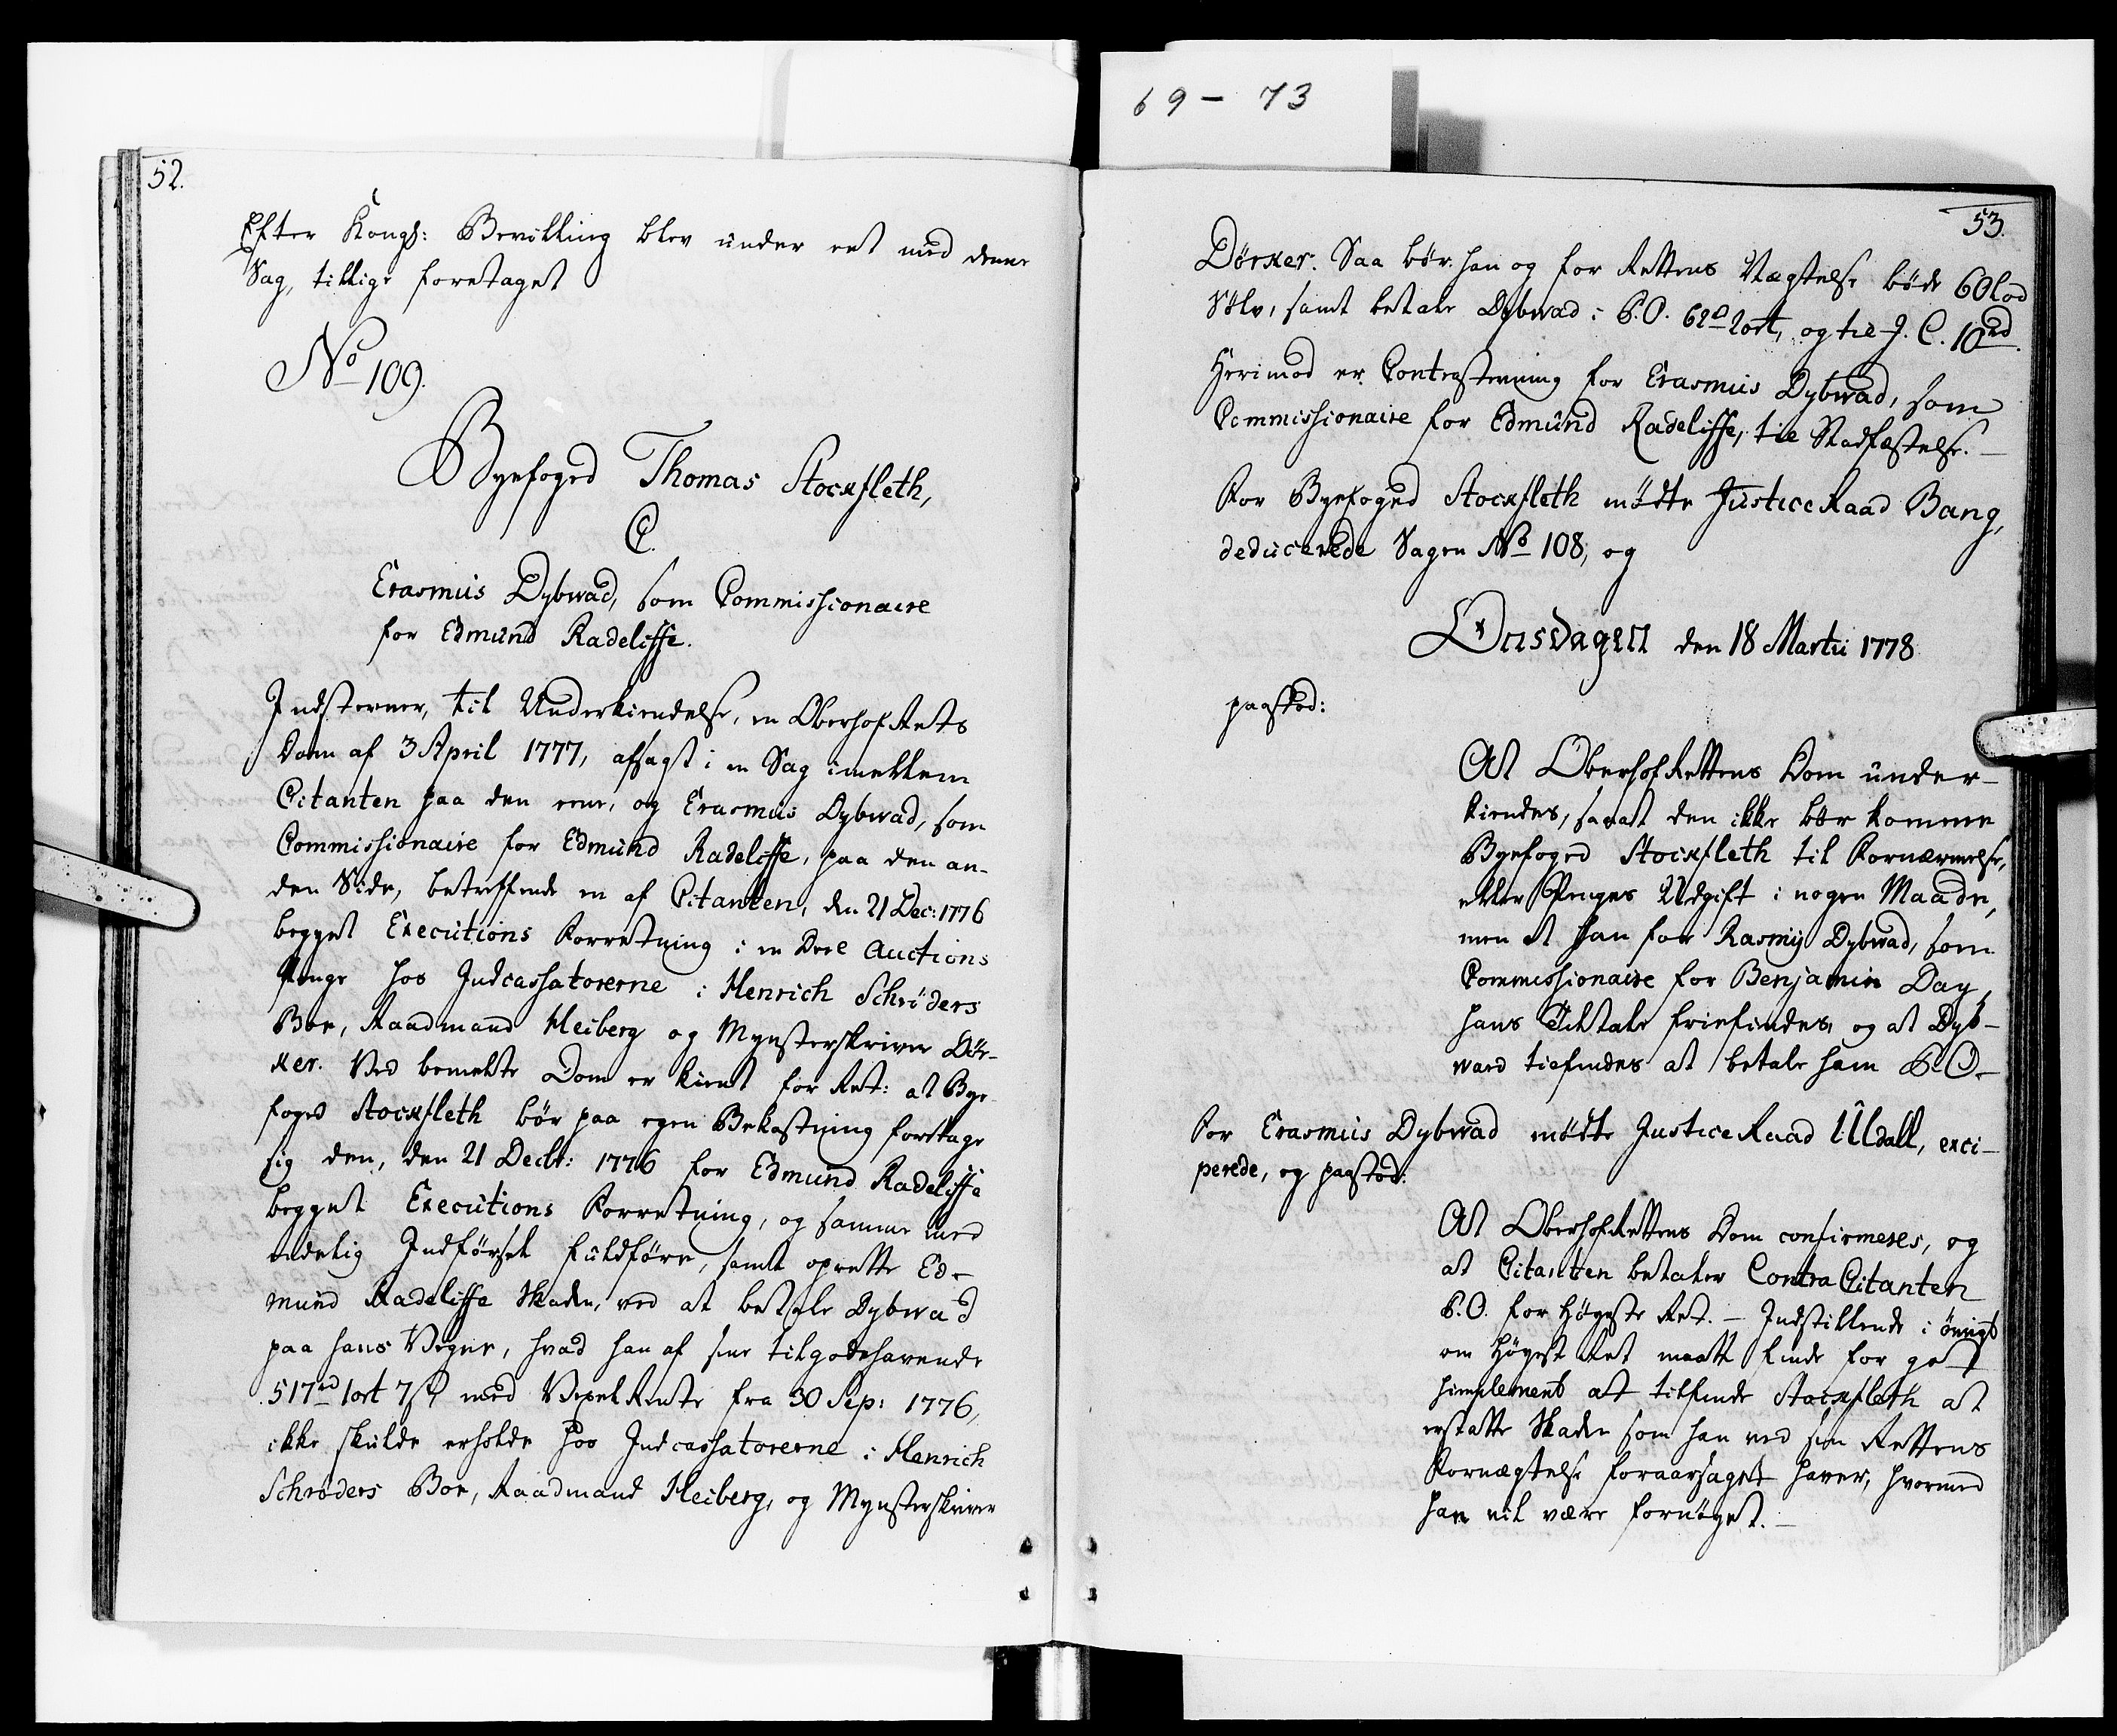 69 - 73
52.
Efter Kongl: Bevilling blev under eet med denne
Sag, tillige foretaget
No 109.
Byefoged Thomas Stockfleth,
C.
Erasmus Dybwad, som Commissionaire
for Edmund Radeliffe.
Indstevner, til Underkiendelse, en OberhofRets
Dom af 3 April 1777, afsagt i en Sag imellem
Citanten paa den eene, og Erasmus Dybwad, som
Commissionaire for Edmund Radeliffe, paa den an-
den Side, betreffende en af Citanten, den 21 Dec: 1776
begynt Executions Forretning i en Deel Auctions
Penge hos Indcassatorerne i Henrich Schrøders
Boe, Raadmand Heiberg og Mynsterskriver Dör-
ker. Ved bemelte Dom er kient for Ret: at Bye-
foged Stockfleth bör paa egen Bekostning foretage
sig den, den 21 Decbr: 1776 for Edmund Radeliffe
begynt Executions Forretning, og samme med
endelig Indførsel fuldføre, samt oprette Ed-
mund Radeliffe Skaden, ved at betale Dybwad
paa hans Vegne, hvad han af sine tilgodehavende
517rd 1ort 7s med Vexel Rente fra 30 Sep: 1776,
ikke skulde erholde hos Indcassatorerne i Henrich
Schrøders Boe, Raadmand Heiberg, og Mynsterskriver
53.
Dörker. Saa bör han og for Rettens Nægtelse bøde 60 Lod
Sölv, samt betale Dybwad i P.O. 62rd 2ort, og til J. C. 10rd.
Herimod er Contrastevning for Erasmus Dybwad, som
Commissionaire for Edmund Radeliffe, til Stadfæstelse. –
For Byefoged Stockfleth mödte JusticeRaad Bang,
deducerede Sagen No 108, og
Onsdagen den 18 Martii 1778
paastod:
At OberhofRettens Dom under-
kiendes, saa at den ikke bör komme
Byefoged Stockfleth til Fornærmelse,
eller Penges Udgift i nogen Maade,
men at han for Rasmus Dybwad, som
Commissionaire for Benjamin Day,
hans Tiltale friefindes, og at Dyb-
wad tilfindes at betale ham P.O.
For Erasmus Dybwad mödte JusticeRaad Uldall, exci-
perede, og paastod:
At OberhofRettens Dom confirmeres, og
at Citanten betaler ContraCitanten
P.O. for Høyeste Ret. – Indstillende i øvrigt
om Høyeste Ret maatte finde for got
simplement at tilfinde Stockfleth at
erstatte Skaden som han ved sin Rettens
Fornægtelse foraarsaget haver, hvormed
han vil være fornøyet. –